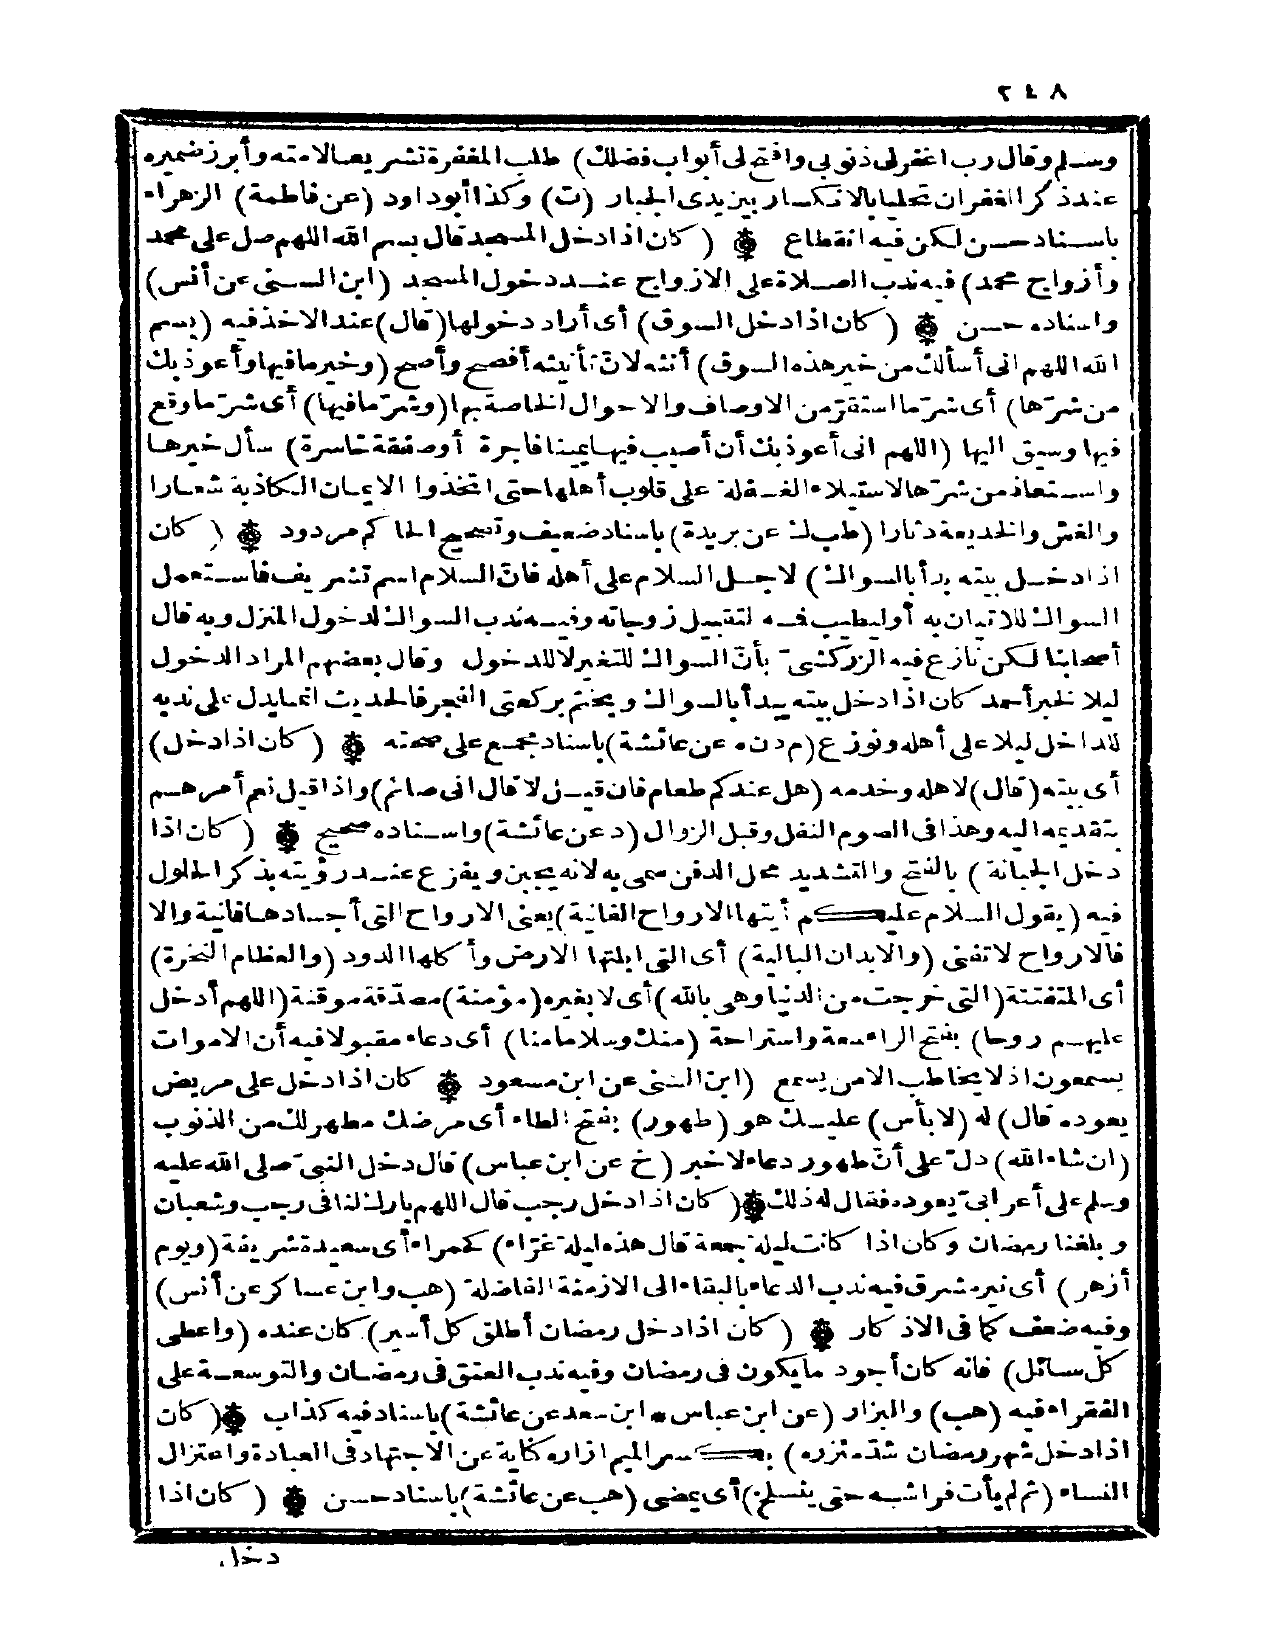 ٢٤٨
وسلم وقال رب اغفر لى ذنوبى وافتح لى أبواب فضلك) طلب المغفرة تشريعا لامته وأبرز ضميره
عند ذكر الغفران تحليا بالانكسار بين يدى الجبار (ت) وكذا أبو داود (عن فاطمة) الزهراء
باسناد حسن لكن فيه انقطاع ۞ (كان اذا دخل المسجد قال بسم الله اللهم صل على محمد
وأزواج محمد) فيه ندب الصلاة على الازواج عند دخول المسجد (ابن السنى عن أنس)
واسناده حسن ۞ (كان اذا دخل السوق) أى أراد دخولها (قال) عند الاخذ فيه (بسم
الله اللهم انى أسألك من خير هذه السوق) أنثه لانّ تأنيثه أفصح وأصح (وخير ما فيها وأعوذ بك
من شرّها) أى شرّ ما استقرّ من الاوصاف والاحوال الخاصة بها (وشرّ ما فيها) أى شرّ ما وقع
فيها وسيق اليها (اللهم انى أعوذ بك أن أصيب فيها يمينا فاجرة أو صفقة خاسرة) سأل خيرها
واستعاذ من شرّها لاستيلاء الغفلة على قلوب أهلها حتى اتخذوا الايمان الكاذبة شعارا
والغش والخديعة دثارا (طب ك عن بريدة) باسناد ضعيف وتصحيح الحاكم مردود ۞ (كان
اذا دخل بيته بدأ بالسواك) لاجل السلام على أهله فانّ السلام اسم شريف فاستعمل
السواك للاتيان به أو ليطيب فمه لتقبيل زوجاته وفيه ندب السواك لدخول المنزل وبه قال
أصحابنا لكن نازع فيه الزركشىّ بأنّ السواك للتغير لا للدخول وقال بعضهم المراد الدخول
ليلا لخبر أحمد كان اذا دخل بيته يبدأ بالسواك ويختم بركعتى الفجر فالحديث انما يدل على ندبه
للداخل ليلا على أهله ونوزع (م د ن ه عن عائشة) باسناد مجمع على صحته ۞ (كان اذا دخل)
أى بيته (قال) لاهله وخدمه (هل عندكم طعام فان قيل لا قال انى صائم) واذا قيل نعم أمرهم
بتقديمه اليه وهذا فى الصوم النفل وقبل الزوال (د عن عائشة) واسناده صحيح ۞ (كان اذا
دخل الجبانة) بالفتح والتشديد محل الدفن سمى به لانه يجبن ويفزع عند رؤيته بذكر الحلول
فيه (يقول السلام عليكم أيتها الارواح الفانية) يعنى الارواح التى أجسادها فانية والا
فالارواح لا تفنى (والابدان البالية) أى التى ابلتها الارض وأكلها الدود (والعظام النخرة)
أى المتفتتة (التى خرجت من الدنيا وهى بالله) أى لا بغيره (مؤمنة) مصدّقة موقنة (اللهم أدخل
عليهم روحا) بفتح الراء سعة واستراحة (منك وسلاما منا) أى دعاء مقبولا فيه أن الاموات
يسمعون اذ لا يخاطب الا من يسمع (ابن السنى عن ابن مسعود ۞ كان اذا دخل على مريض
يعوده قال) له (لا بأس) عليك هو (طهور) بفتح الطاء أى مرضك مطهر لك من الذنوب
(ان شاء الله) دلّ على أنّ طهور دعاء لا خبر (خ عن ابن عباس) قال دخل النبىّ صلى الله عليه
وسلم على أعرابىّ يعوده فقال له ذلك ۞ (كان اذا دخل رجب قال اللهم بارك لنا فى رجب وشعبان
وبلغنا رمضان وكان اذا كانت ليلة جمعة قال هذه ليلة غرّاء) كحمراء أى سعيدة شريفة (ويوم
أزهر) أى نير مشرق فيه ندب الدعاء بالبقاء الى الازمنة الفاضلة (هب وابن عساكر عن أنس)
وفيه ضعف كما فى الاذكار ۞ (كان اذا دخل رمضان أطلق كل أسير) كان عنده (واعطى
كل سائل) فانه كان أجود ما يكون فى رمضان وفيه ندب العتق فى رمضان والتوسعة على
الفقراء فيه (هب) والبزار (عن ابن عباس * ابن سعد عن عائشة) باسناد فيه كذاب ۞ (كان
اذا دخل شهر رمضان شدّ مئزره) بكسر الميم ازاره كناية عن الاجتهاد فى العبادة واعتزال
النساء (ثم لم يأت فراشه حتى ينسلخ) أى يمضى (هب عن عائشة) باسناد حسن ۞ (كان اذا
دخل